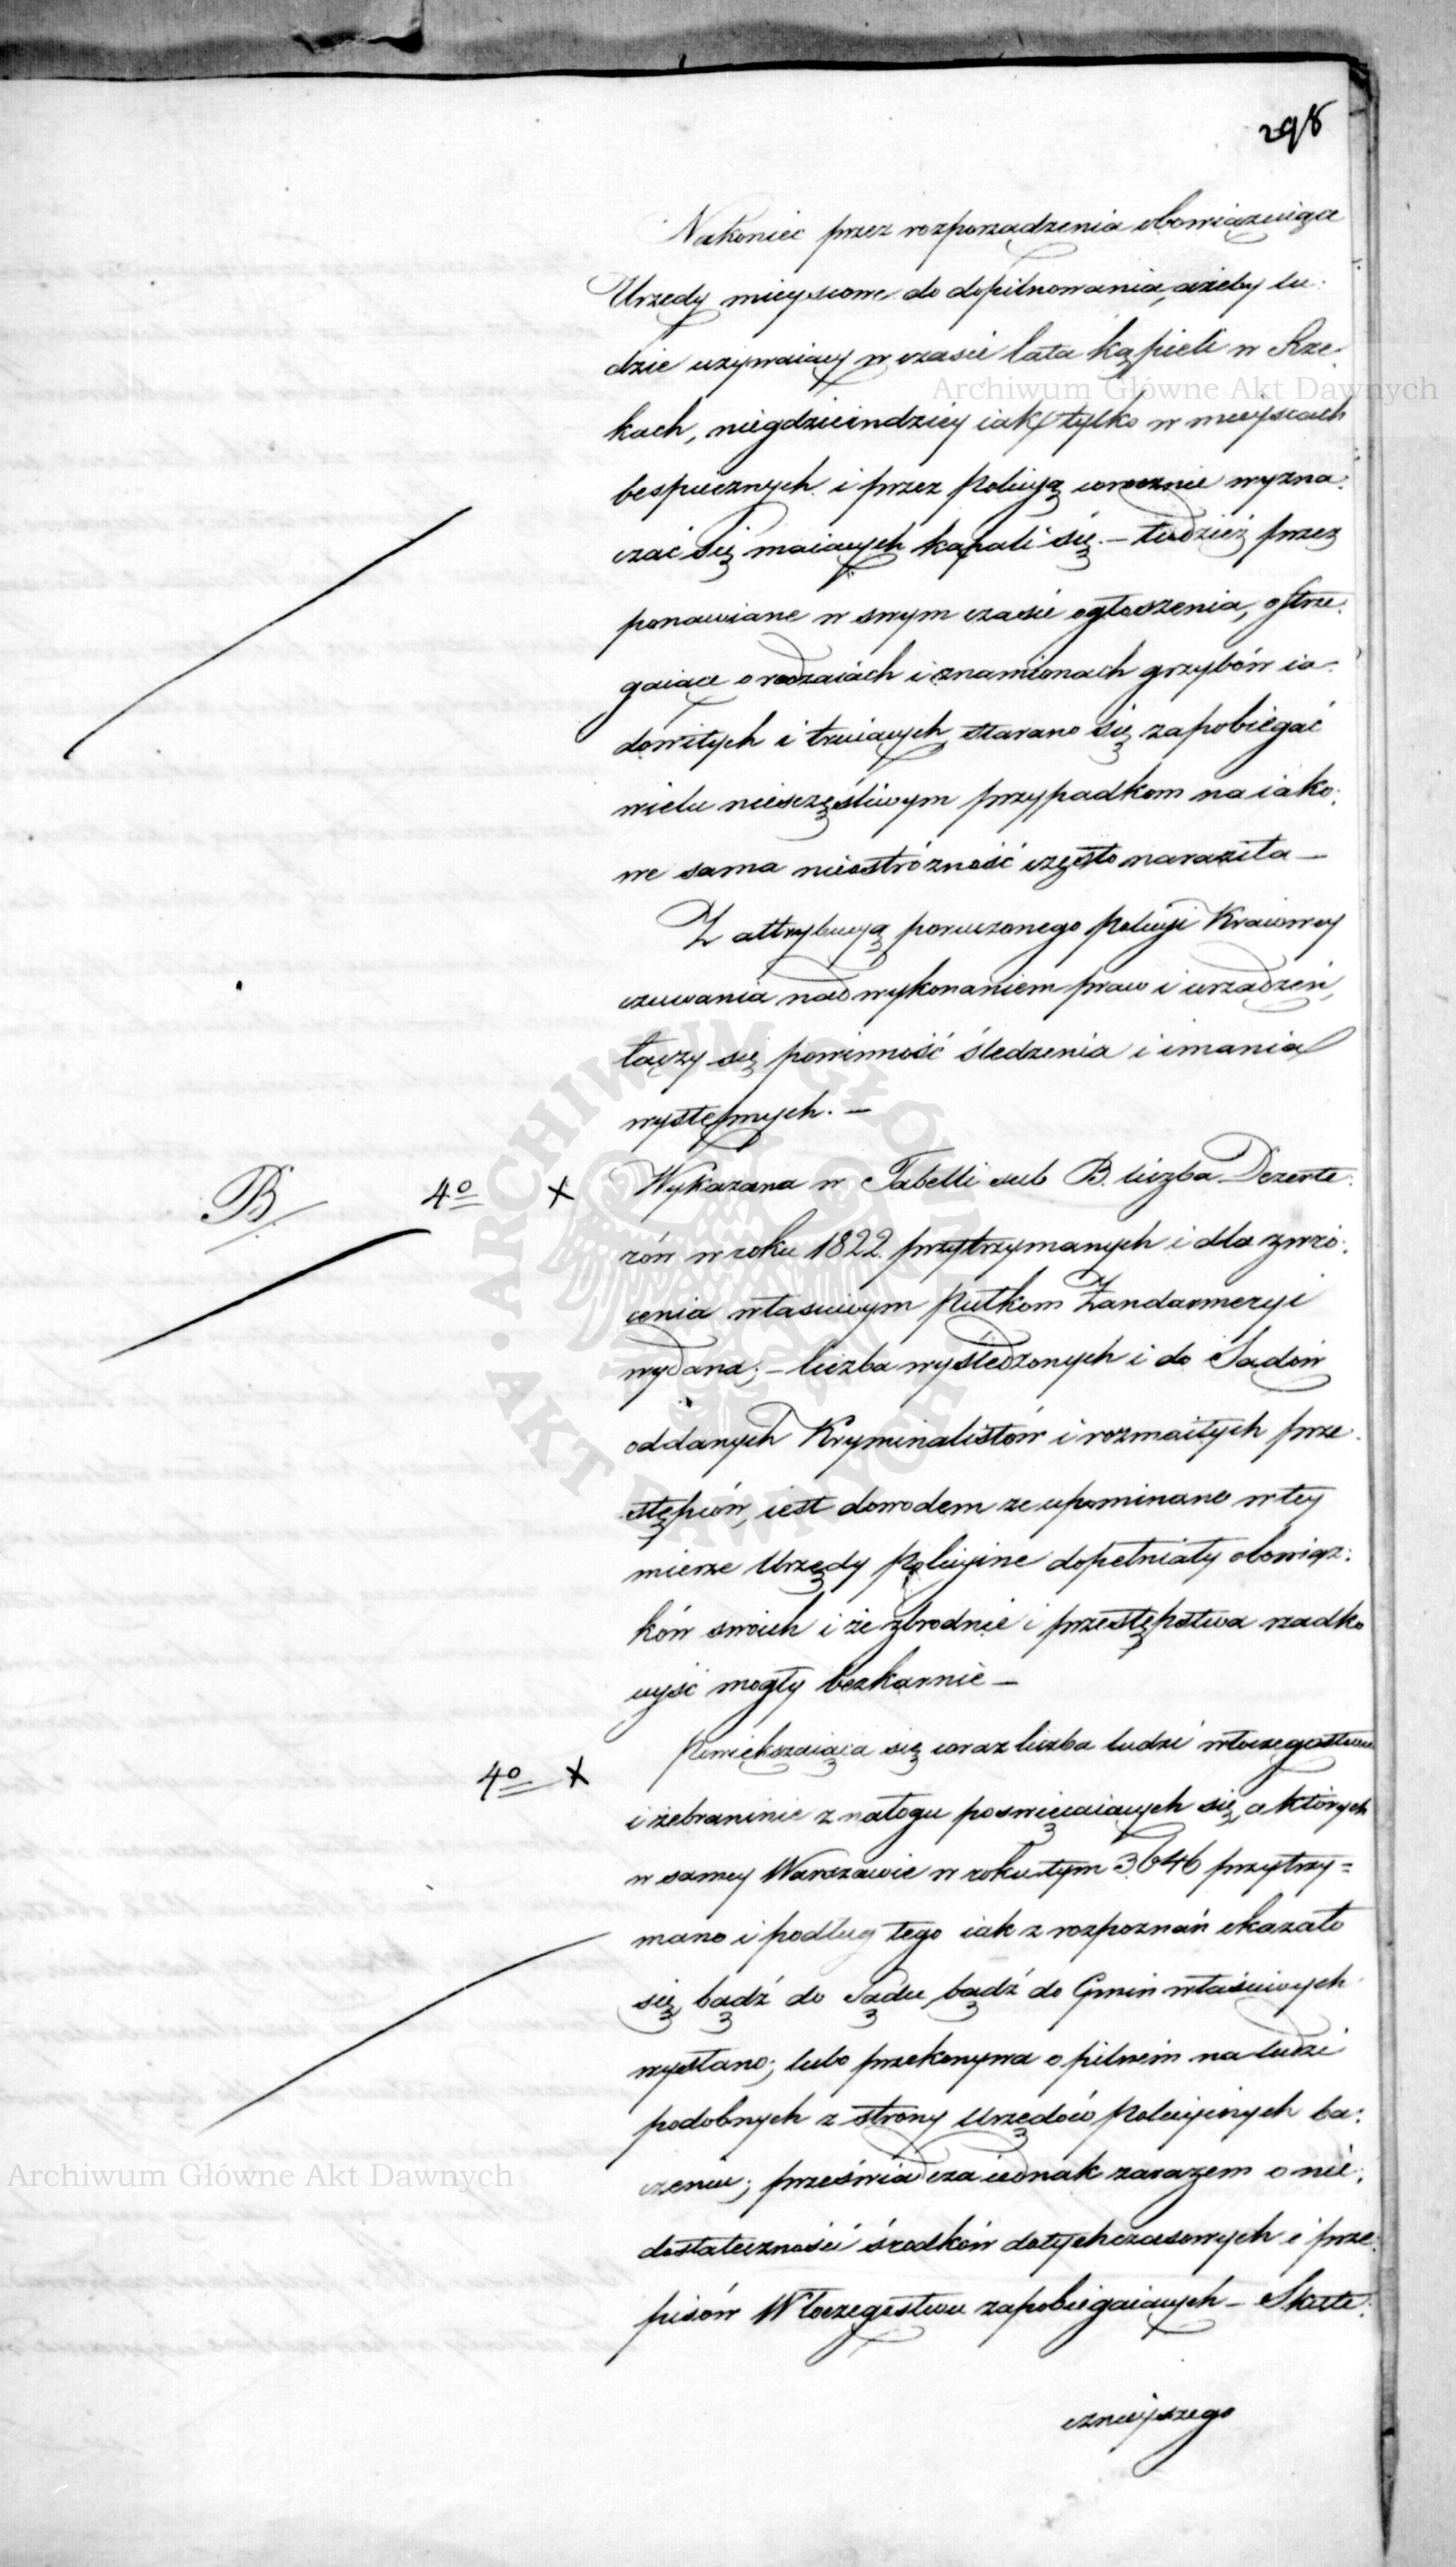 298
Nakoniec przez rozporządzenia obowiązuiące
Urzędy mieyscowe do dopilnowania, ażeby lu:
dzie używaiący w czasie lata kąpieli w Rze:
kach, niegdzieindziey iak tylko w mieyscach
bespiecznych i przez Policyą corocznie wyzna:
czać się maiących kąpali się. – tudzież przez
ponawiane w swym czasie ogłoszenia, ostrze:
gaiące o rodzaiach i znamionach grzybów ia:
dowitych i truiących starano się zapobiegać
wielu nieszczęśliwym przypadkom na iako:
we sama nieostrózność często naraziła –
Z attrybucyą poruczonego Policyi Kraiowey
czuwania nad wykonaniem praw i urządzeń,
łączy się powinność śledzenia i imania
występnych. –
B. 4º x Wykazana w Tabelli sub B. liczba Dezerte:
rów w roku 1822 przytrzymanych i dla zwró:
cenia właściwym Pułkom Żandarmeryi
wydana; – liczba wyśledzonych i do Sądów
oddanych Kryminalistów i rozmaitych prze:
stępców, iest dowodem ze upominane w tey
mierze Urzędy Policyine dopełniały obowiąz:
ków swoich i że zbrodnie i przestępstwa rzadko
uyść mogły bezkarnie –
4º x Powiększaiąca się coraz liczba ludzi włoczęgostwu
i żebraninie z nałogu poswięcaiących się, a których
w samey Warszawie w roku tym 3646 przytrzy=
mano i podług tego iak z rozpoznań okazało
się, bądź do Sądu bądź do Gmin właściwych
wysłano; lubo przekonywa o pilném na ludzi
podobnych z strony Urzędów Policyinych ba:
czeniu; przeświadcza iednak zarazem o nie:
dostateczności środków dotychczasowych i prze:
pisów Włoczęgostwu zapobiegaiących – Skute:
cznieyszego
Archiwum Główne Akt Dawnych
Archiwum Główne Akt Dawnych
ARCHIWUM GŁÓWNE AKT DAWNYCH